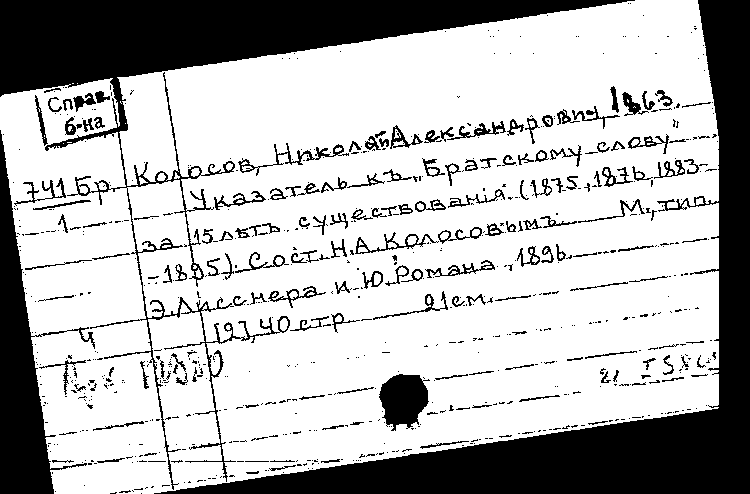 Справ.
б-ка
741 Бр.
1
Колосов, Николай Александрович, 1863.
Указатель къ „Братскому слову"
за 15 лѣтъ существованія. (1875, 1876, 1883-
-1895). Сост. Н.А. Колосовымъ. М., тип.
Э. Лисснера и Ю. Романа, 1896.
[2], 40 стр 21 см.
Ч